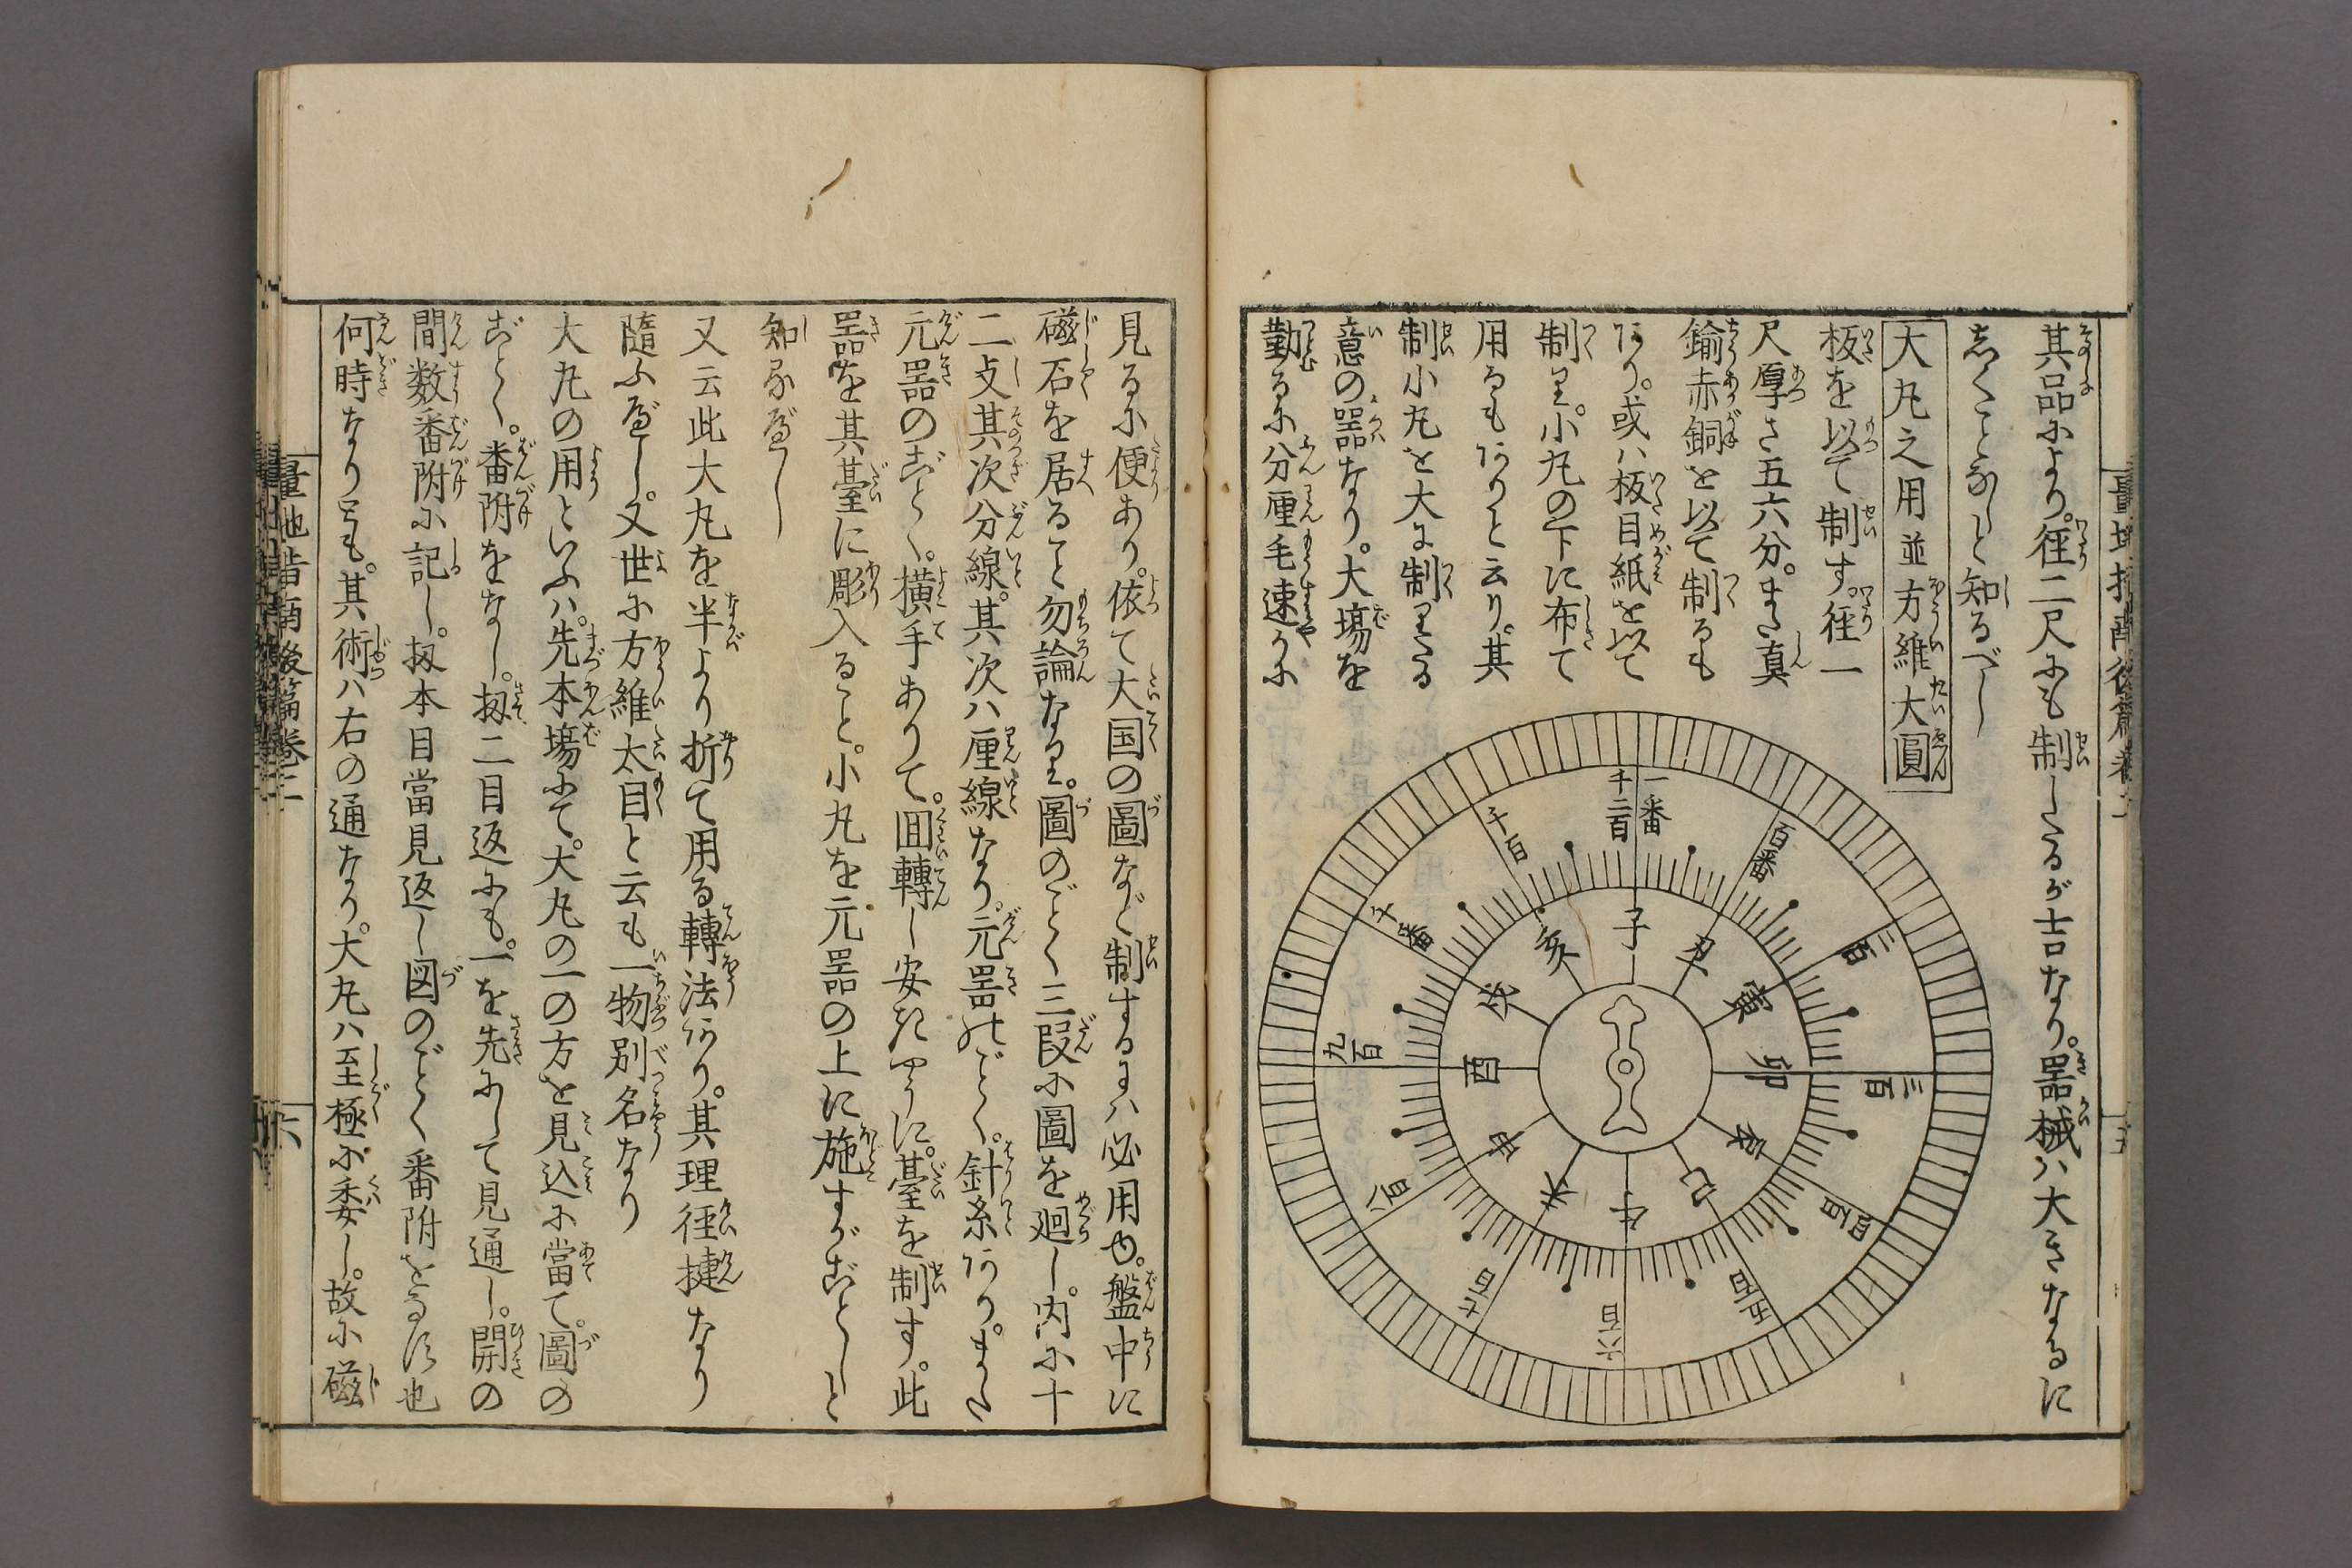 其品により。径二尺にも制したるが吉なり。器械ハ大きなるに
しくことなしと知るべし
大丸之用並方維大圓
板を以て制す。径一
尺厚さ五六分。また真
鍮赤銅を以て制るも
あり。或ハ板目紙を以て
制り。小丸の下に布て
用るもありと云り。其
制小丸を大に制りたる
意の器なり。大場を
勤るに分厘毛速かに
一番
千二百
百番
二百
三百
四百
五百
六百
七百
八百
九百
千番
千百
子
丑
寅
卯
辰
巳
午
未
申
酉
戌
亥
見るに便あり。依て大国の圖など制するにハ必用也。盤中に
磁石を居ること勿論なり。圖のごとく三段に圖を廻し。内に十
二支其次分線。其次ハ厘線なり。元器のごとく。針糸あり。また
元器のごとく。横手ありて。囬轉し安きやうに。臺を制す。此
器を其臺に彫入ること。小丸を元器の上に施すがごとしと
知るべし
又云此大丸を半より折て用る轉法あり。其理径捷なり
随ふべし。又世に方維太目と云も一物別名なり
大丸の用といふハ。先本場にて。大丸の一の方を見込に當て。圖の
ごとく。番附をなし。扨二目返にも。一を先にして見通し。開の
間数番附に記し。扨本目當見返し図のごとく番附をなす也
何時なりとも。其術ハ右の通なり。大丸ハ至極に委し。故に磁
量地指南後篇巻二
五
量地指南後篇巻二
六